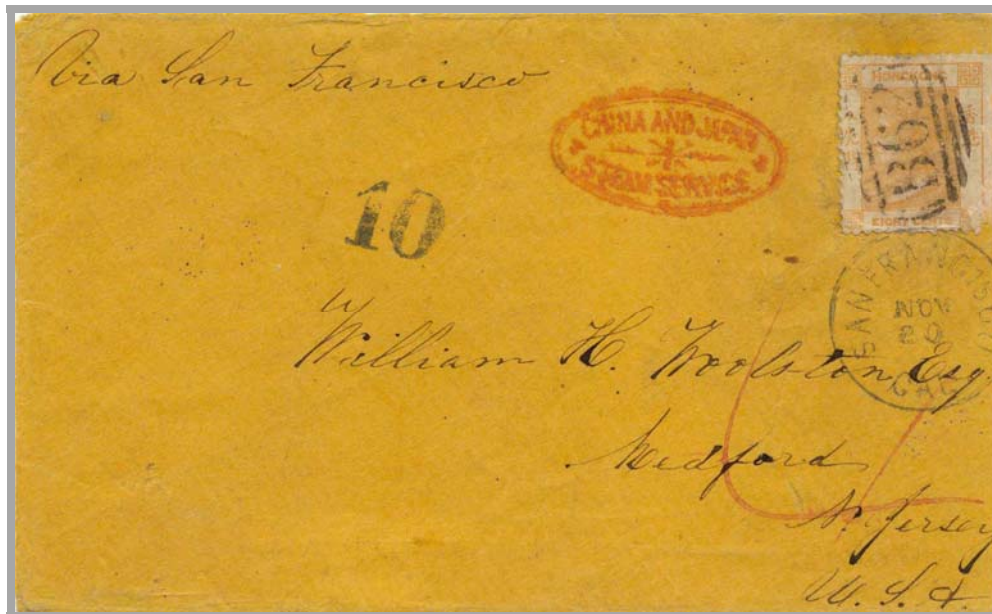 Via San Francisco
CHINA AND JAPAN
STEAM SERVICE
HONGKONG
B62
EIGHT CENTS
10
SAN FRANCISCO
NOV
20
CAL
William H. Woolston Esq.
Medford
N. Jersey
U.S.A.
4